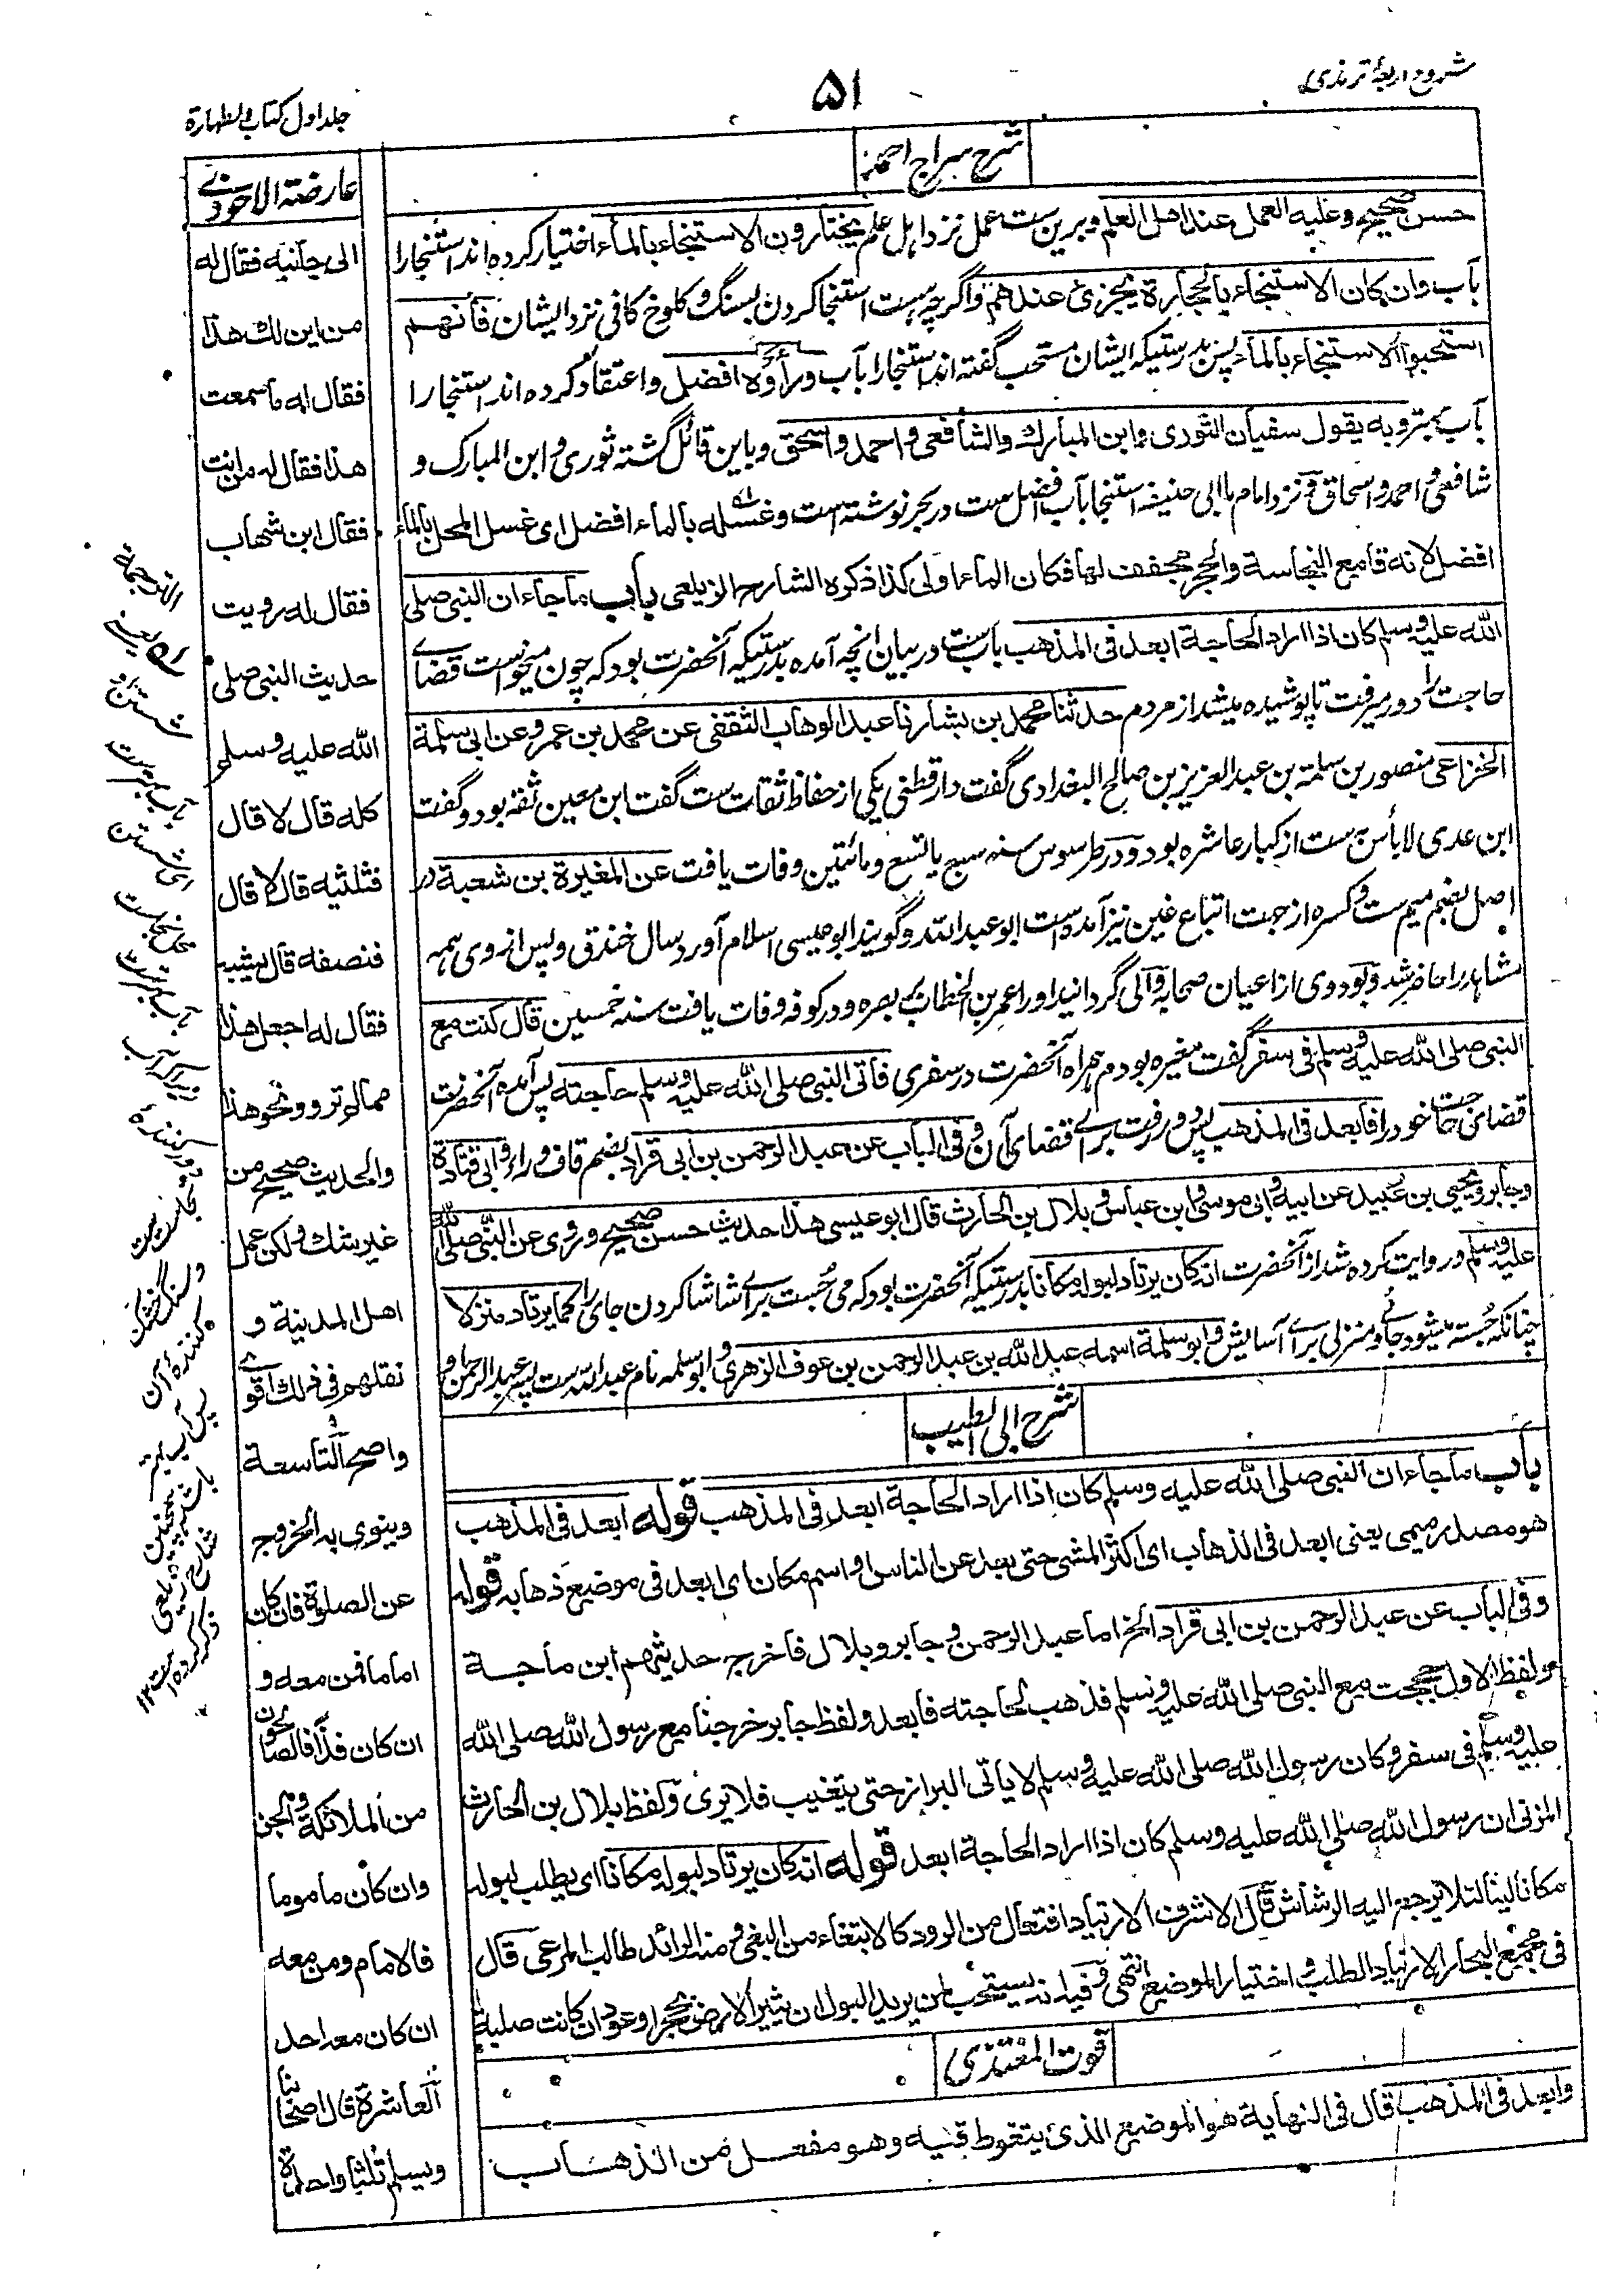 شروح اربعۀ ترمذی
۵۱
جلد اول کتاب الطهارة
شرح سراج احمد
حسن صحیح وعلیه العمل عند اهل العلم وبرین ست عمل نزد اہل علم یختارون الاستنجاء بالماء اختیار کرده اند استنجا را
بآب وان کان الاستنجاء بالحجارة یجزئ عندهم واگرچہ ہست استنجا کردن بسنگ وکلوخ کافی نزد ایشان فانهم
استحبوا الاستنجاء بالماء پس بدرستیکہ ایشان مستحب گفتہ اند استنجا را بآب ورأوه افضل واعتقاد کرده اند استنجا را
بآب بهتر وبه یقول سفیان الثوری وابن المبارك والشافعی واحمد واسحق وباین قائل گشتہ ثوری وابن المبارک و
شافعی واحمد واسحاق ونزد امام ما ابی حنیفہ استنجا بآب افضل ست در بحر نوشتہ است وغسله بالماء افضل ای غسل المحل بالماء
افضل لانه قامع النجاسة والحجر مجفف لها فکان الماء اولی کذا ذکره الشارح الزیلعی باب ما جاء ان النبی صلی
الله علیه وسلم کان اذا اراد الحاجة ابعد فی المذهب باب ست در بیان انچہ آمده بدرستیکہ آنحضرت بود کہ چون میخواست قضاے
حاجت را دور میرفت تا پوشیده میشد از مردم حدثنا محمد بن بشار نا عبد الوهاب الثقفی عن محمد بن عمرو عن ابی سلمة
الخزاعی منصور بن سلمة بن عبد العزیز بن صالح البغدادی گفت دارقطنی یکی از حفاظ ثقات ست گفت ابن معین ثقہ بود وگفت
ابن عدی لا بأس بہ ست از کبار عاشره بود ودر طرسوس سنہ سبع یا تسع ومائتین وفات یافت عن المغیرة بن شعبة در
اصل بضم میم ست وکسره از جهت اتباع غین نیز آمده ست ابو عبد اللہ وگویند ابو عیسی اسلام آورد سال خندق وپس از وی ہمہ
مشاہد را حاضر شد وبود وی از اعیان صحابہ ووالی گردانید او را عمر بن الخطاب بر بصره ودر کوفہ وفات یافت سنہ خمسین قال کنت مع
النبی صلی الله علیه وسلم فی سفر گفت مغیره بودم ہمراه آنحضرت در سفری فاتی النبی صلی الله علیه وسلم حاجته پس آمده آنحضرت
قضائی حاجت خود را فابعد فی المذهب پس دور رفت براے قضای آن وفی الباب عن عبد الرحمن بن ابی قراد بضم قاف وراء وابی قتادة
وجابر ویحیی بن عبید عن ابیه وابی موسی وابن عباس وبلال بن الحارث قال ابو عیسی هذا حدیث حسن صحیح وروی عن النبی صلی الله
علیه وسلم وروایت کرده شد از آنحضرت انه کان یرتاد لبوله مکانا بدرستیکہ آنحضرت بود کہ می جُست براے شاشا کردن جای را کما یرتاد منزلا
چنانکہ جُستہ میشود جائے ومنزلی براے آسایش وابو سلمة اسمه عبد الله بن عبد الرحمن بن عوف الزهری وابو سلمہ نام عبد اللہ ست پسر عبد الرحمن و
شرح ابی الطیب
باب ما جاء ان النبی صلی الله علیه وسلم کان اذا اراد الحاجة ابعد فی المذهب قوله ابعد فی المذهب
هو مصدر میمی یعنی ابعد فی الذهاب ای اکثر المشی حتی بعد عن الناس او اسم مکان ای ابعد فی موضع ذهابه قوله
وفی الباب عن عبد الرحمن بن ابی قراد الخ اما عبد الرحمن وجابر وبلال فاخرج حدیثهم ابن ماجة
ولفظ الاول حججت مع النبی صلی الله علیه وسلم فذهب لحاجته فابعد ولفظ جابر خرجنا مع رسول الله صلی الله
علیه وسلم فی سفر وکان رسول الله صلی الله علیه وسلم لا یاتی البراز حتی یتغیب فلا یری ولفظ بلال بن الحارث
المزنی ان رسول الله صلی الله علیه وسلم کان اذا اراد الحاجة ابعد قوله انه کان یرتاد لبوله مکانا ای یطلب لبوله
مکانا لینا لئلا یرجع الیه الرشاش قال الاشرف الارتیاد افتعال من الرود کالابتغاء من البغی ومنه الرائد طالب المرعی قال
فی مجمع البحار الارتیاد الطلب واختیار الموضع انتهی وفیه انه یستحب لمن یرید البول ان یثیر الارض بحجر او عود ان کانت صلبة
قوت المغتذی
وابعد فی المذهب قال فی النهایة هو الموضع الذی یتغوط فیه وهو مفعل من الذهاب
عارضة الاحوذی
الی جانبه فقال له
من این لك هذا
فقال له ما سمعت
هذا فقال له من انت
فقال ابن شهاب
فقال له رویت
حدیث النبی صلی
الله علیه وسلم
کله قال لا قال
فثلثیه قال لا قال
فنصفه قال یشبه
فقال له اجعل هذا
مما لم ترو ونحو هذا
والحدیث صحیح من
غیر شك ولکن عمل
اهل المدینة و
نقلهم فی ذلك اقوے
واصح التاسعة
وینوی به الخروج
عن الصلوة فان کان
اماما فمن معه و
ان کان فذا فالصالحون
من الملائکة والجن
وان کان ماموما
فالامام ومن معه
ان کان معه احد
العاشرة قال اصحابنا
ویسلم ثلثا واحدة
الترجمة
شستن او
بآب بهتر ست
ای شستن
محل نجاست
بآب بهتر ست
زیرا کہ آب
دور کننده
نجاست ست
وسنگ خشک
کننده آن
پس آب بہتر
باشد همچنین
شارح زیلعی
ذکر کرده ۱۲